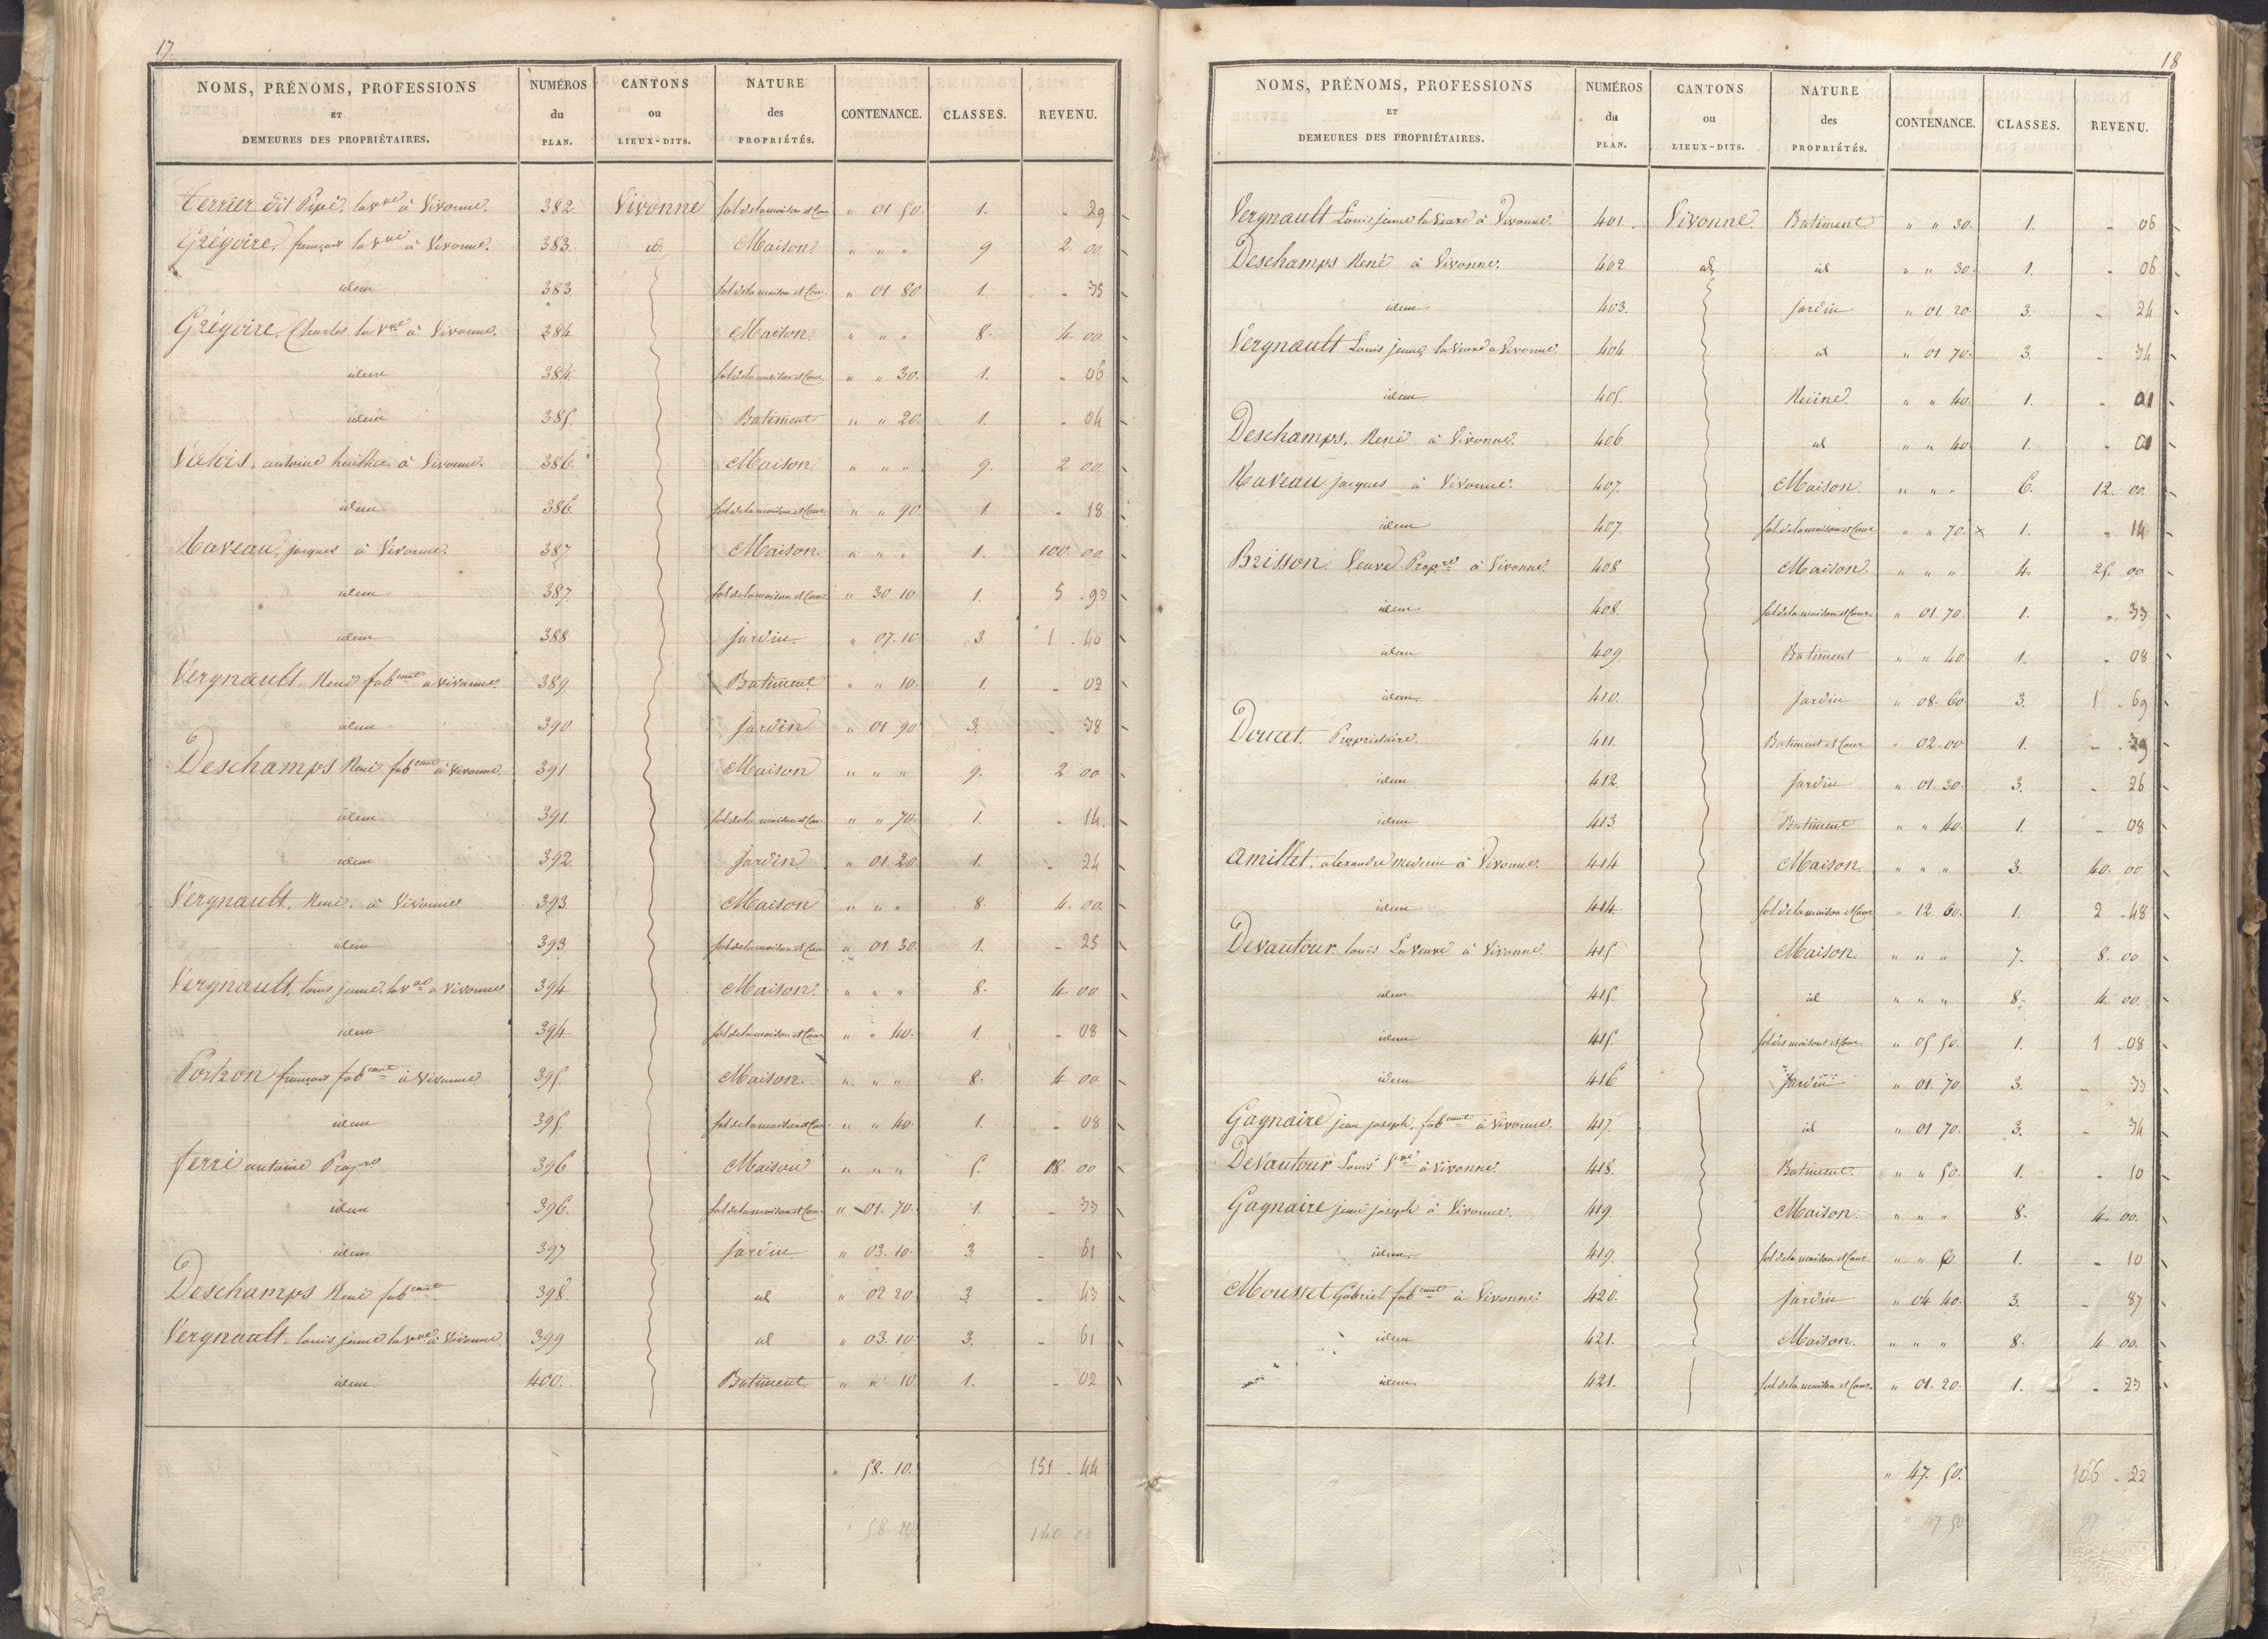 17.
NOMS, PRÉNOMS, PROFESSIONS ET DEMEURES DES PROPRIÉTAIRES. NUMÉROS du PLAN. CANTONS ou LIEUX-DITS. NATURE des PROPRIÉTÉS. CONTENANCE. CLASSES. REVENU.
terrier dit Pipé, la vve à Vivonne. 382. Vivonne Sol de la maison et Cour " 01 50. 1. - 29
Grégoire, françois la vve à Vivonne. 383. id Maison " " " 9 2 00
idem 383. Sol de la maison et Cour " 01 80 1. - 35
Grégoire, Charles la Vve à Vivonne. 384 Maison " " " 8. 4 00
idem 384. Sol de la maison et Cour " " 30. 1. - 06
idem 385. Batiment " " 20. 1. - 04
antoine à Vivonne. 386. Maison " " " 9. 2 00
idem 386. Sol de la maison et Cour " " 90 1. - 18
Raveau, jacques à Vivonne. 387 Maison. " " " 1. 100 00
idem 387. Sol de la maison et Cour " 30 10 1. 5 - 93
idem 388 Jardin. " 07. 10 3. 1 - 40
Vergnault, René fabcant à Vivonne. 389. Batiment " " 10. 1. - 02
idem 390 Jardin " 01 90 3. - 38
Deschamps René fabcant à Vivonne. 391 Maison " " " 9. 2 00
idem 391. Sol de la maison et Cour " " 70. 1. - 14.
idem 392. Jardin " 01 20 1. - 24
Vergnault, René, à Vivonne 393. Maison " " " 8. 4. 00.
idem 393. Sol de la maison et Cour " 01. 30. 1. - 25
Vergnault, Louis jeune, la vve à Vivonne 394 Maison. " " " 8. 4 00
idem 394. Sol de la maison et Cour " " 40. 1. - 08
Portron françois fabcant à Vivonne 395. Maison. " " " 8. 4 00
idem 395. Sol de la maison et Cour " " 40. 1. - 08
ferré antoine Propre 396 Maison " " " 5. 18. 00
idem 396. Sol de la maison et Cour " 01. 70. 1. - 33
idem 397. Jardin " 03. 10. 3 - 61
Deschamps René fabcant. 398. id " 02 20. 3. - 43
Vergnault, louis jeune la vve à Vivonne. 399 id " 03. 10 3. - 61
idem 400. Batiment " " 10. 1. - 02
" 58. 10. 151 - 44
" 58. 10 140 00
18
NOMS, PRÉNOMS, PROFESSIONS ET DEMEURES DES PROPRIÉTAIRES. NUMÉROS du PLAN. CANTONS ou LIEUX-DITS. NATURE des PROPRIÉTÉS. CONTENANCE. CLASSES. REVENU.
Vergnault Louis jeune la Veuve à Vivonne. 401. Vivonne. Batiment " " 30. 1. - 06
Deschamps René à Vivonne. 402 id id " " 30. 1. - 06
idem 403. Jardin " 01. 20. 3. - 24
Vergnault Louis jeune, la Veuve à Vivonne. 404 id " 01 70. 3. - 34
idem 405. Ruine. " " 40. 1. - 01
Deschamps, René à Vivonne. 406 id " " 40. 1. - 01
Raveau jacques à Vivonne. 407. Maison. " " " 6. 12. 00.
idem 407. Sol de la maison et Cour " " 70. x 1. " 14
Brisson. Veuve Propre à Vivonne. 408 Maison. " " " 4. 25. 00
idem 408. Sol de la maison et Cour " 01. 70. 1. " 33
idem 409. Batiment " " 40. 1. - 08
idem 410. Jardin " 08. 60. 3. 1 - 69
Doucet. Propriétaire. 411. Batiment et Cour " 02. 00 1. - 39
idem 412. Jardin " 01. 30. 3. - 26
idem 413 Batiment " " 40. 1. - 08
amillet, alexandre medecin à Vivonne. 414 Maison. " " " 3. 40. 00
idem 414. Sol de la maison et Cour " 12. 60. 1. 2 - 48
Devautour louis La Veuve à Vivonne. 415. Maison. " " " 7. 8. 00
idem 415. id " " " 8. 4. 00.
idem 415. Sol des maisons et Cour " 05 50. 1. 1 - 08
idem 416 Jardin " 01 70. 3. - 33
Gagnaire jean joseph, fabcant à Vivonne. 417. id " 01 70. 3. - 34
Devautour Louis Vve à Vivonne. 418. Batiment. " " 50. 1. - 10
Gagnaire jean joseph à Vivonne. 419. Maison. " " " 8. 4. 00.
idem. 419. Sol de la maison et Cour " " 50. 1. - 10
Mousset Gabriel fabcant à Vivonne. 420. Jardin " 04 40. 3. - 87
idem 421. Maison. " " " 8. 4 00.
idem. 421. Sol de la maison et Cour. " 01. 20. 1. - 23
" 47. 50. 106 - 22
" 47 50 97